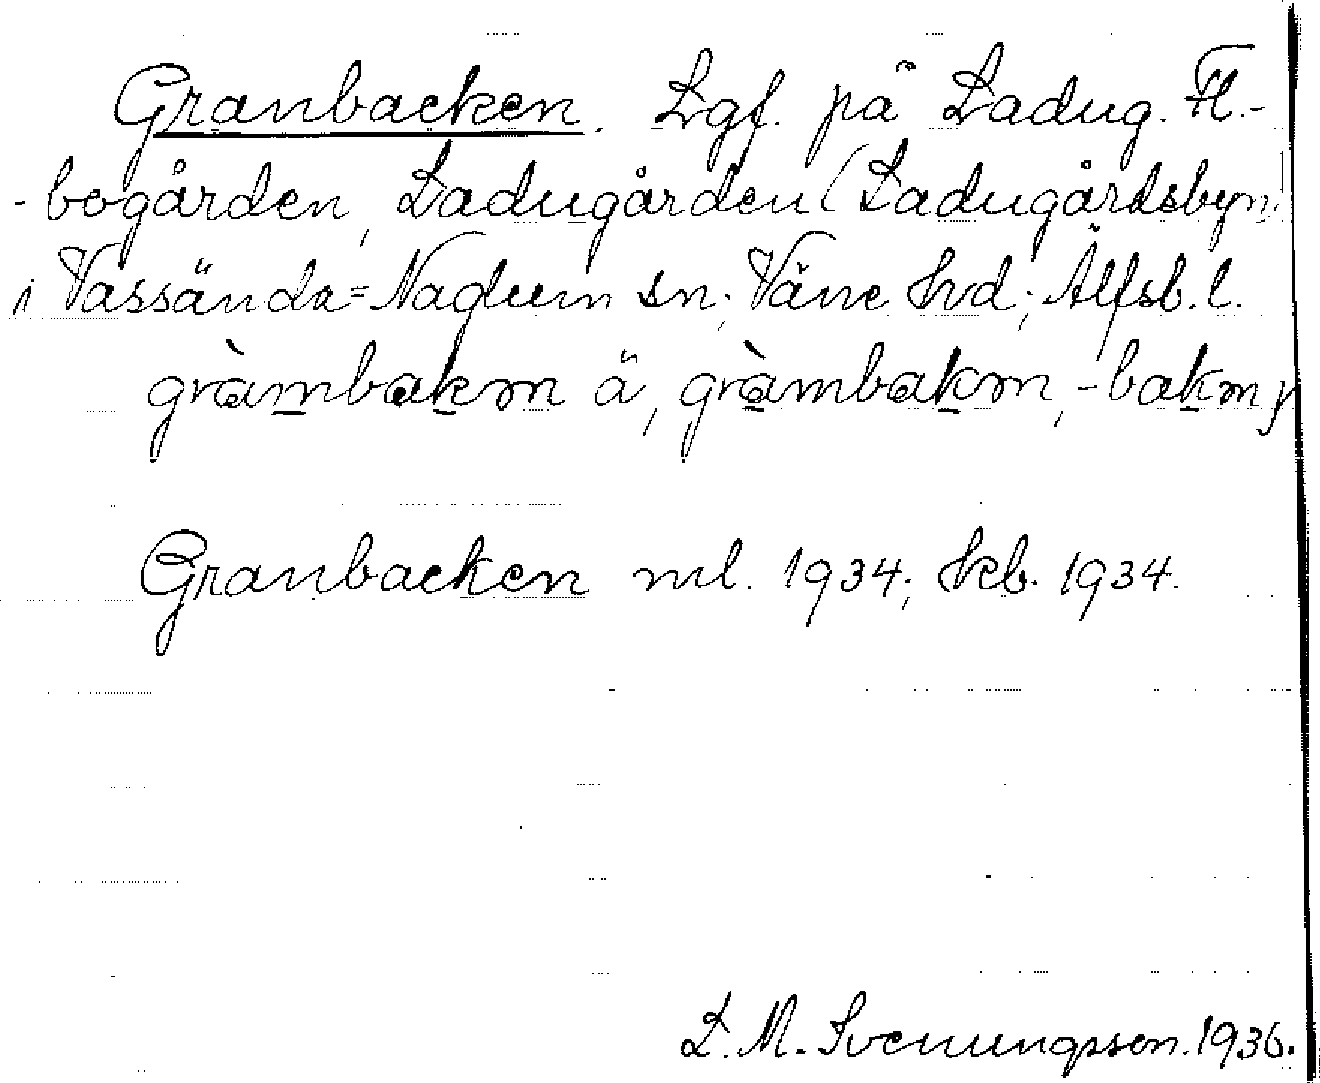 Granbacken. Lgf. på Ladug. Fl.-
-bogården, Ladugården (Ladugårdsbyn)
i Vassända-Naglum sn; Väne hrd; Älfsb. l.
gràmbakm ä, gràmbakm, -bakm y
Granbacken ml. 1934; kb. 1934.
L. M. Svenungsson. 1936.